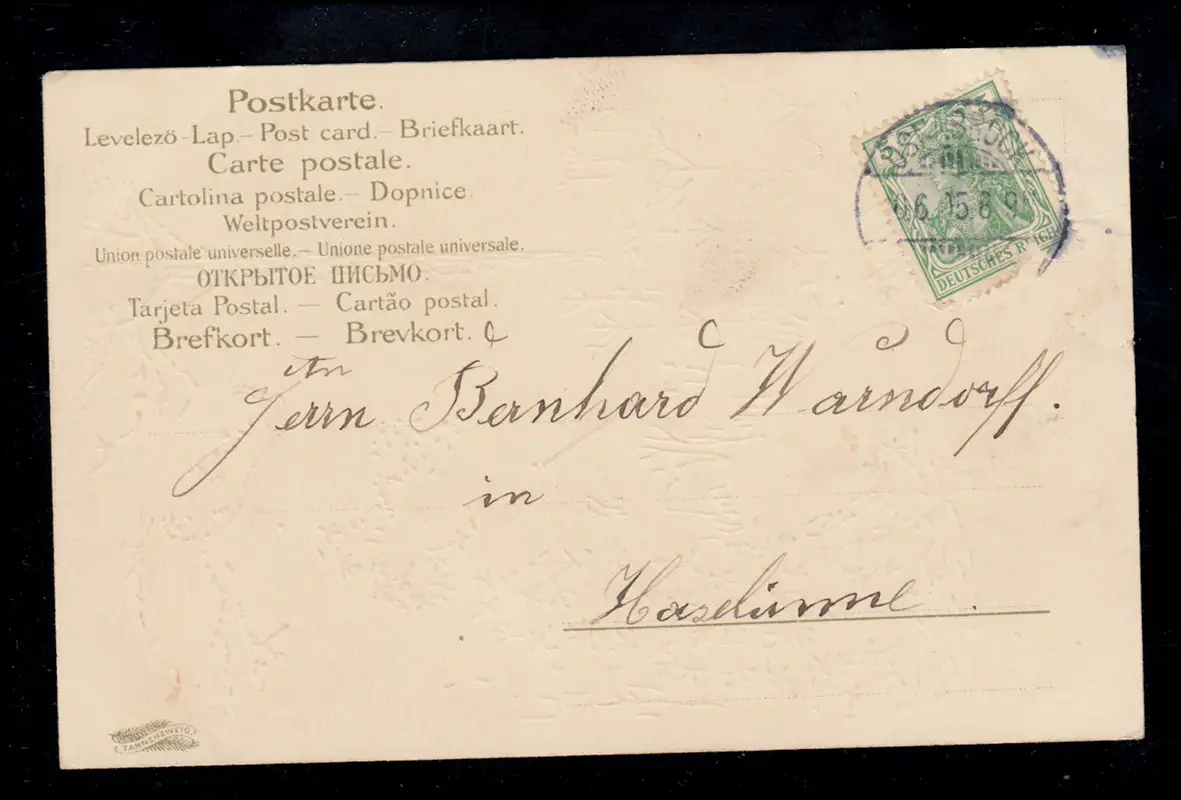 Postkarte.
Levelező-Lap.–Post card.–Briefkaart.
Carte postale.
Cartolina postale.– Dopnice.
Weltpostverein.
Union postale universelle.– Unione postale universale.
ОТКРЫТОЕ ПИСЬМО.
Tarjeta Postal. – Cartão postal.
Brefkort. – Brevkort.
5
DEUTSCHES REICH
15 8 9
Herrn Bernhard Warndorff.
in
Haselünne.
TANNENZWEIG